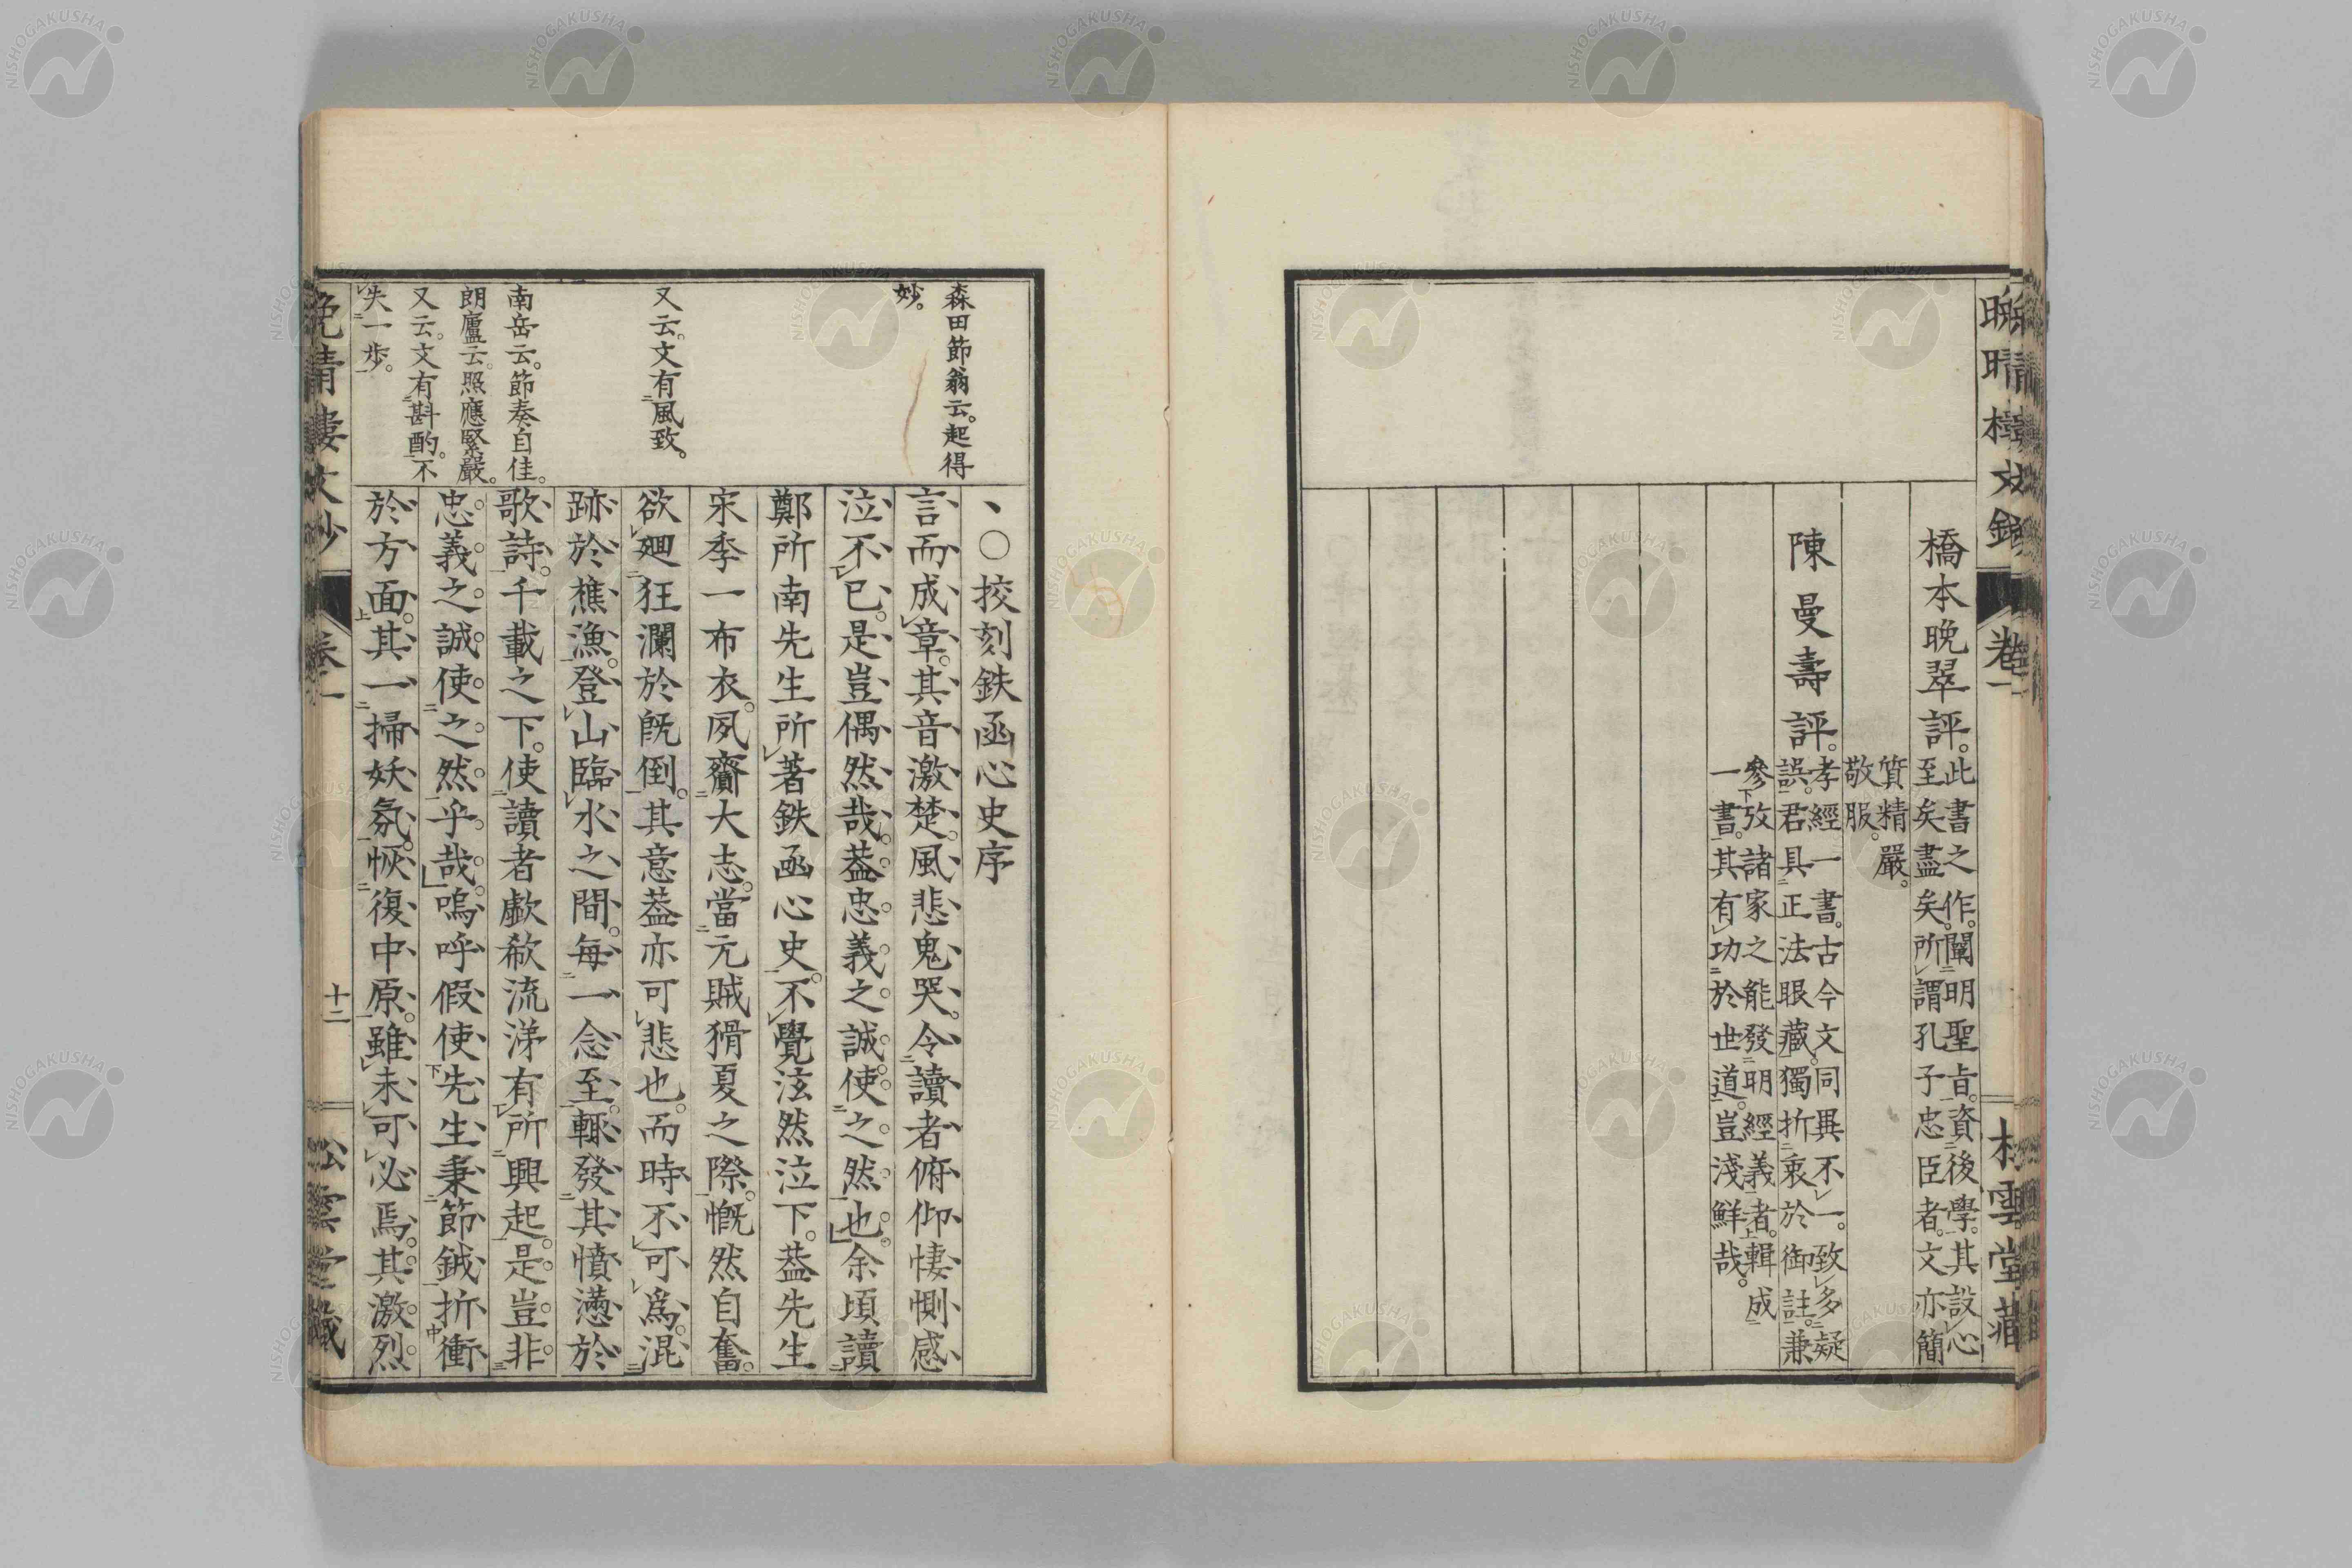 晩晴樓文鈔 卷一 松雲堂藏
橋本晩翠評。此書之作。闡明聖旨。資後學。其設心
至矣盡矣。所謂孔子忠臣者。文亦簡
質精嚴。
敬服。
陳曼壽評。孝經一書。古今文同異不一。致多疑
誤。君具正法眼藏。獨折衷於御註。兼
參攷諸家之能發明經義者。輯成
一書。其有功於世道。豈淺鮮哉。
森田節翁云。起得
妙。
又云。文有風致。
南岳云。節奏自佳。
朗廬云。照應緊嚴。
又云。文有斟酌。不
失一步。
、○挍刻鉄函心史序
言而成章。其音激楚。風悲鬼哭。令讀者俯仰悽惻感
泣不已。是豈偶然哉。葢忠義之誠。使之然也。余頃讀
鄭所南先生所著鉄函心史。不覺泫然泣下。葢先生
宋季一布衣。夙齎大志。當元賊猾夏之際。慨然自奮。
欲廻狂瀾於旣倒。其意葢亦可悲也。而時不可爲。混
跡於樵漁。登山臨水之間。每一念至。輙發其憤懣於
歌詩。千載之下。使讀者歔欷流涕有所興起。是豈非
忠義之誠使之然乎哉。嗚呼假使先生秉節鉞折衝
於方面。其一掃妖氛。恢復中原。雖未可必焉。其激烈
晩晴樓文鈔 卷一 十二 松雲堂藏